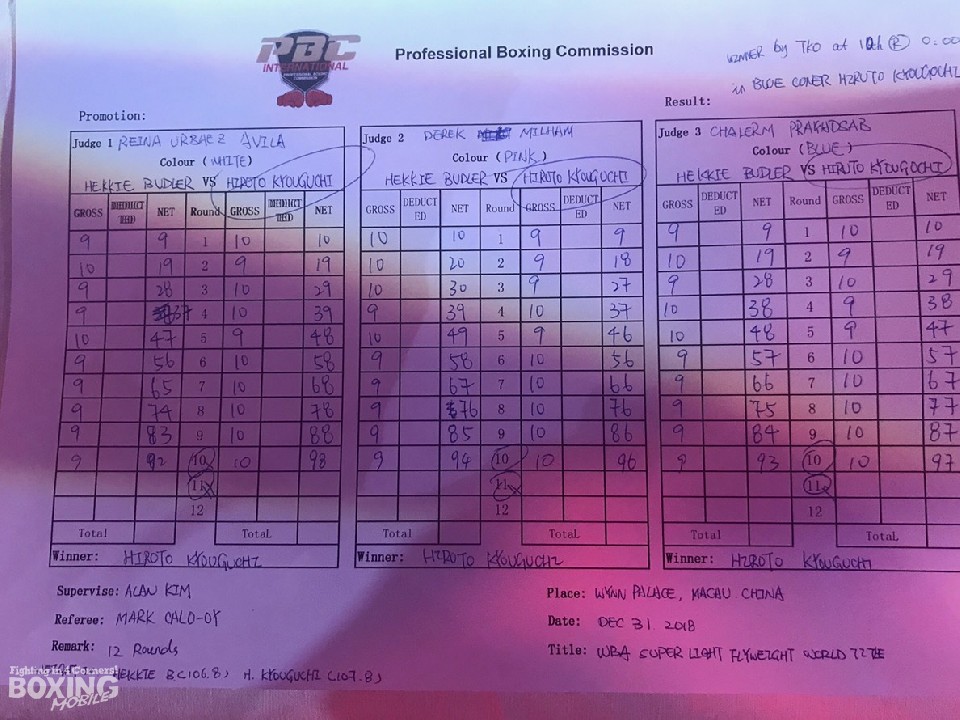 PBC
INTERNATIONAL
PROFESSIONAL BOXING
COMMISSION
Professional Boxing Commission
WINNER by TKO at 10th (R) 0:00
in BLUE CONER HIRUTO KYOUGUCHI
Promotion:
Result:
Judge 1 REINA URBAEZ AVILA
Colour (WHITE)
HEKKIE BUDLER VS HIROTO KYOUGUCHI
GROSS DEDUCTED NET Round GROSS DEDUCTED NET
9 9 1 10 10
10 19 2 9 19
9 28 3 10 29
9 37 4 10 39
10 47 5 9 48
9 56 6 10 58
9 65 7 10 68
9 74 8 10 78
9 83 9 10 88
9 92 10 10 98
11
12
Total Total
Winner: HIROTO KYOUGUCHI
Judge 2 DEREK MILHAM
Colour (PINK)
HEKKIE BUDLER VS HIROTO KYOUGUCHI
GROSS DEDUCTED NET Round GROSS DEDUCTED NET
10 10 1 9 9
10 20 2 9 18
10 30 3 9 27
9 39 4 10 37
10 49 5 9 46
9 58 6 10 56
9 67 7 10 66
9 76 8 10 76
9 85 9 10 86
9 94 10 10 96
11
12
Total Total
Winner: HIROTO KYOUGUCHI
Judge 3 CHALERM PRAYADSAB
Colour (BLUE)
HEKKIE BUDLER VS HIRUTO KYOUGUCHI
GROSS DEDUCTED NET Round GROSS DEDUCTED NET
9 9 1 10 10
10 19 2 9 19
9 28 3 10 29
10 38 4 9 38
10 48 5 9 47
9 57 6 10 57
9 66 7 10 67
9 75 8 10 77
9 84 9 10 87
9 93 10 10 97
11
12
Total Total
Winner: HIROTO KYOUGUCHI
Supervise: ALAN KIM
Referee: MARK CALO-OY
Remark: 12 Rounds
HEKKIE B (106.8) H. KYOUGUCHI (107.8)
Place: WYNN PALACE, MACAU CHINA
Date: DEC 31. 2018
Title: WBA SUPER LIGHT FLYWEIGHT WORLD TITLE
Fighting in 4 Corners!
BOXING
MOBILE